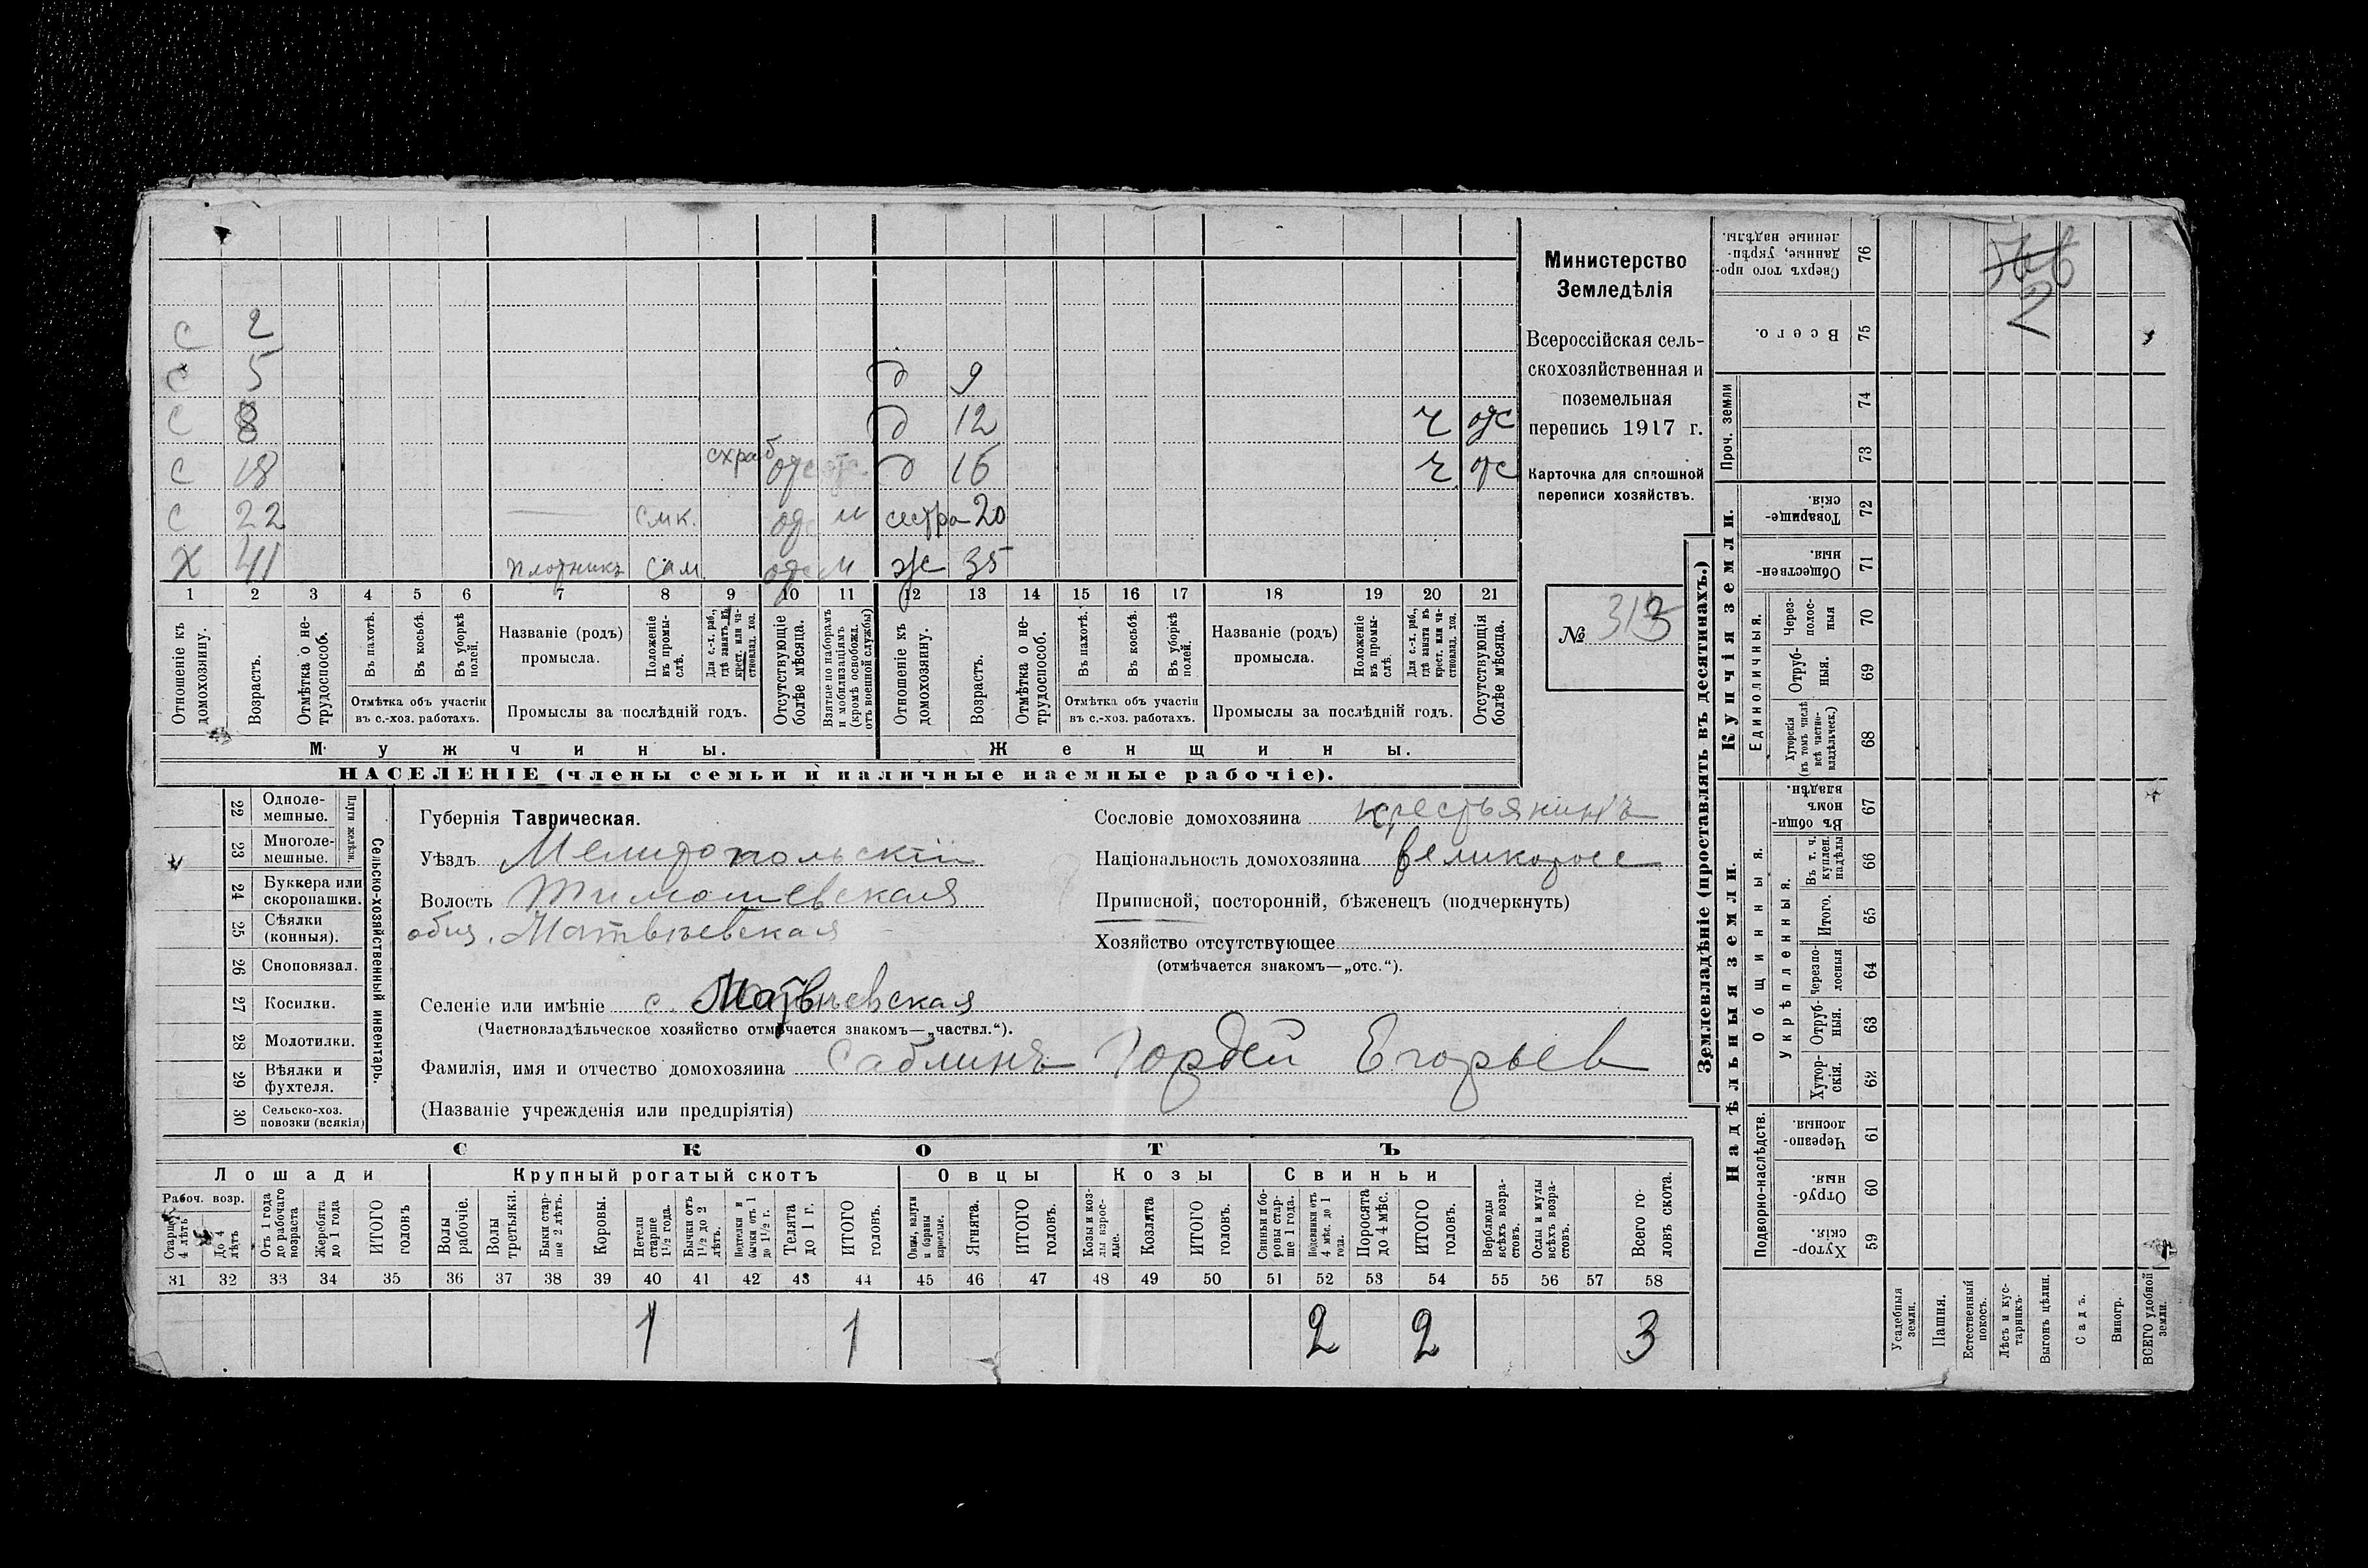 С 2
С 5 д 9
С 8 д 12 ч отс
С 18 схраб отс д 16 ч отс
С 22 — смк. отс м сестра 20
Х 41 плотникъ сам. отс м ж 35
1 2 3 4 5 6 7 8 9 10 11 12 13 14 15 16 17 18 19 20 21
Отношеніе къ домохозяину.
Возрастъ.
Отмѣтка о нетрудоспособ.
Въ пахотѣ.
Въ косьбѣ.
Въ уборкѣ полей.
Отмѣтка объ участіи въ с.-хоз. работахъ.
Названіе (родъ) промысла.
Положеніе въ промыслѣ.
Для с.-х. раб., гдѣ занятъ въ крест. или частновлад. хоз.
Промыслы за послѣдній годъ.
Отсутствующіе болѣе мѣсяца.
Взятые по наборамъ и мобилизаціямъ (кромѣ освобожд. отъ военной службы)
Отношеніе къ домохозяину.
Возрастъ.
Отмѣтка о нетрудоспособ.
Въ пахотѣ.
Въ косьбѣ.
Въ уборкѣ полей.
Отмѣтка объ участіи въ с.-хоз. работахъ.
Названіе (родъ) промысла.
Положеніе въ промыслѣ.
Для с.-х. раб., гдѣ занята въ крест. или частновлад. хоз.
Промыслы за послѣдній годъ.
Отсутствующія болѣе мѣсяца.
Мужчины. Женщины.
НАСЕЛЕНІЕ (члены семьи и наличные наемные рабочіе).
Министерство
Земледѣлія
Всероссійская сель-
скохозяйственная и
поземельная
перепись 1917 г.
Карточка для сплошной
переписи хозяйствъ.
№ 313
22 Одноле-
мешные.
23 Многоле-
мешные.
Плуги желѣзн.
24 Буккера или
скоропашки.
25 Сѣялки
(конныя).
26 Сноповязал.
27 Косилки.
28 Молотилки.
29 Вѣялки и
фухтеля.
30 Сельско-хоз.
повозки (всякія)
Сельско-хозяйственный инвентарь.
Губернія Таврическая.
Уѣздъ Мелитопольскій
Волость Тимошевская
общ. Матвѣевская
Селеніе или имѣніе с. Матвѣевская
(Частновладѣльческое хозяйство отмѣчается знакомъ—„частвл.“).
Фамилія, имя и отчество домохозяина Саблинъ Гордей Егорьев
(Названіе учрежденія или предпріятія)
Сословіе домохозяина крестьянинъ
Національность домохозяина великоросс
Приписной, посторонній, бѣженецъ (подчеркнуть)
Хозяйство отсутствующее
(отмѣчается знакомъ—„отс.“).
СКОТЪ
Лошади Крупный рогатый скотъ Овцы Козы Свиньи
Рабоч. возр.
Старше 4 лѣтъ
До 4 лѣтъ
Отъ 1 года до рабочаго возраста
Жеребята до 1 года
ИТОГО головъ
Волы рабочіе.
Волы третьяки.
Быки старше 2 лѣтъ.
Коровы.
Нетели старше 1½ года.
Бычки отъ 1½ до 2 лѣтъ.
Нетелки и бычки отъ 1 до 1½ г.
Телята до 1 г.
ИТОГО головъ.
Овцы, валухи и бараны взрослые.
Ягнята.
ИТОГО головъ.
Козы и козлы взрослые.
Козлята
ИТОГО головъ.
Свиньи и боровы старше 1 года.
Подсвинки отъ 4 мѣс. до 1 года.
Поросята до 4 мѣс.
ИТОГО головъ.
Верблюды всѣхъ возрастовъ.
Ослы и мулы всѣхъ возрастовъ.
Всего головъ скота.
31 32 33 34 35 36 37 38 39 40 41 42 43 44 45 46 47 48 49 50 51 52 53 54 55 56 57 58
1 1 2 2 3
Землевладѣніе (проставлять въ десятинахъ.)
Надѣльныя земли. Купчія земли. Проч. земли
Подворно-наслѣдств.
Общинныя.
Укрѣпленныя.
Единоличныя.
Сверхъ того проданные, укрѣпленные надѣлы. 76
Всего. 75
74
73
Товарищескія. 72
Общественныя. 71
Черезполосныя 70
Отрубныя. 69
Хуторскія (въ томъ числѣ всѣ частновладѣльческ.) 68
Въ общинномъ владѣн. 67
Въ т. ч. куплен. надѣлы 66
Итого. 65
Черезполосныя 64
Отрубныя. 63
Хуторскія. 62
Черезполосныя. 61
Отрубныя. 60
Хуторскія. 59
Усадебныя земли.
Пашня.
Естественный покосъ.
Лѣсъ и кустарникъ.
Выгонъ цѣлин.
Садъ.
Виногр.
ВСЕГО удобной земли.